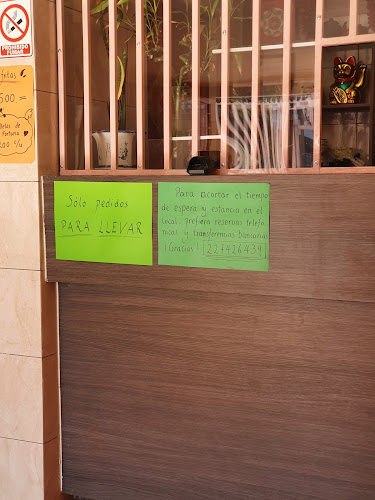 PROHIBIDO
FUMAR
500.=
Bolas de
Fortuna
Sólo pedidos
PARA LLEVAR
Para acortar el tiempo
de espera y estancia en el
local, prefiera reservas telefó-
nicas y transferencias bancarias
¡Gracias! 224426434